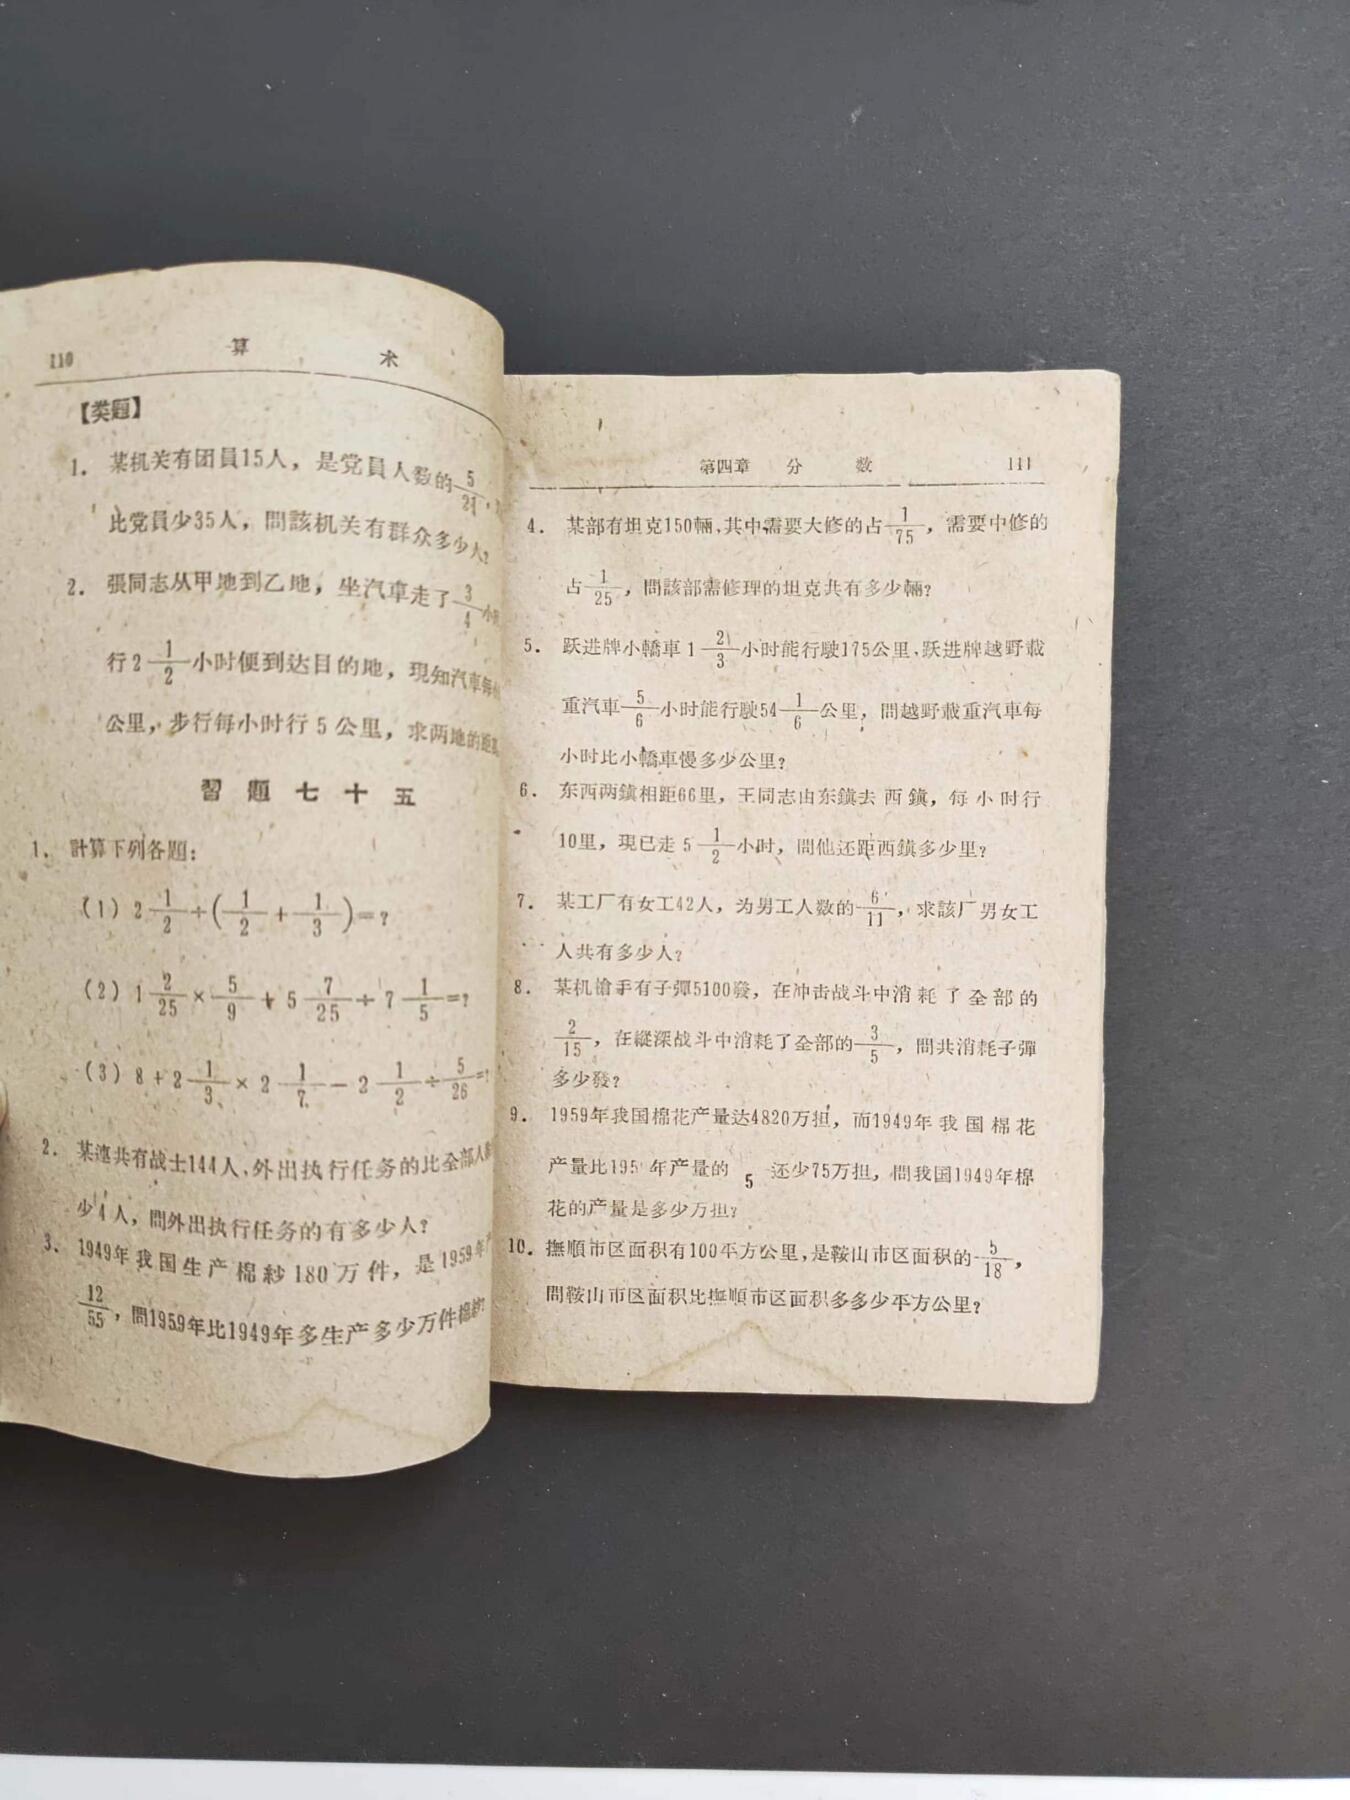 110 算 术
【类题】
1. 某机关有团員15人，是党員人数的5/21，
比党員少35人，問該机关有群众多少人？
2. 張同志从甲地到乙地，坐汽車走了3/4小时
行2 1/2小时便到达目的地，現知汽車每
公里，步行每小时行5公里，求两地的距
習題七十五
1. 計算下列各題：
(1) 2 1/2÷(1/2+1/3)=？
(2) 1 2/25×5/9+5 7/25÷7 1/5=？
(3) 8+2 1/3×2 1/7-2 1/2÷5/26=？
2. 某連共有战士144人，外出执行任务的比全部人
少4人，問外出执行任务的有多少人？
3. 1949年我国生产棉紗180万件，是1959年
12/55，問1959年比1949年多生产多少万件棉紗？
第四章 分 数 111
4. 某部有坦克150輛，其中需要大修的占1/75，需要中修的
占1/25，問該部需修理的坦克共有多少輛？
5. 跃进牌小轎車1 2/3小时能行駛175公里，跃进牌越野載
重汽車5/6小时能行駛54 1/6公里，問越野載重汽車每
小时比小轎車慢多少公里？
6. 东西两鎮相距66里，王同志由东鎮去西鎮，每小时行
10里，現已走5 1/2小时，問他还距西鎮多少里？
7. 某工厂有女工42人，为男工人数的6/11，求該厂男女工
人共有多少人？
8. 某机槍手有子彈5100發，在冲击战斗中消耗了全部的
2/15，在縱深战斗中消耗了全部的3/5，問共消耗子彈
多少發？
9. 1959年我国棉花产量达4820万担，而1949年我国棉花
产量比195 年产量的 5 还少75万担，問我国1949年棉
花的产量是多少万担？
10. 撫順市区面积有100平方公里，是鞍山市区面积的5/18，
問鞍山市区面积比撫順市区面积多多少平方公里？